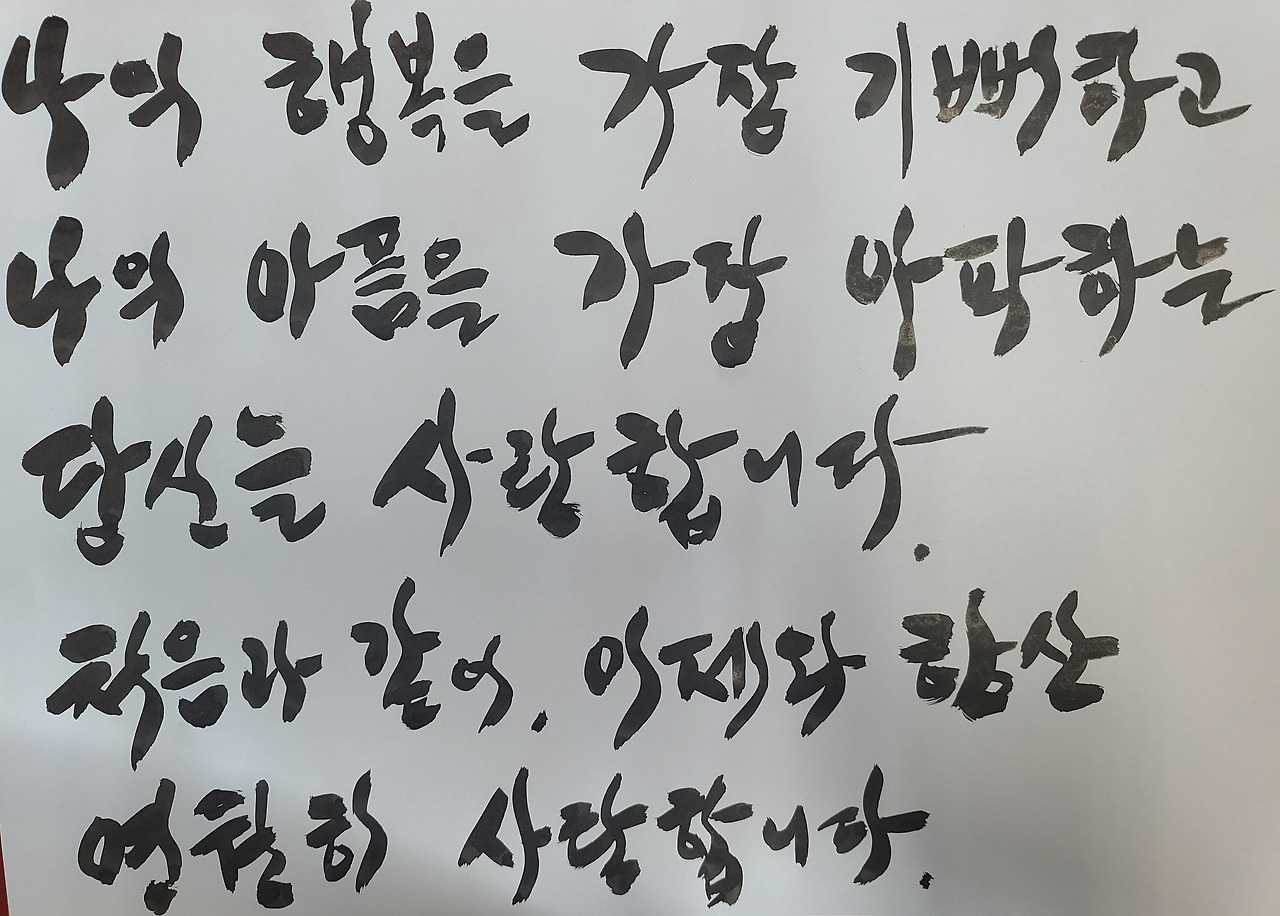 나의 행복은 가장 기뻐하고
나의 아픔은 가장 아파하는
당신는 사랑합니다.
처음과 같이. 이제와 항상
영원히 사랑합니다.